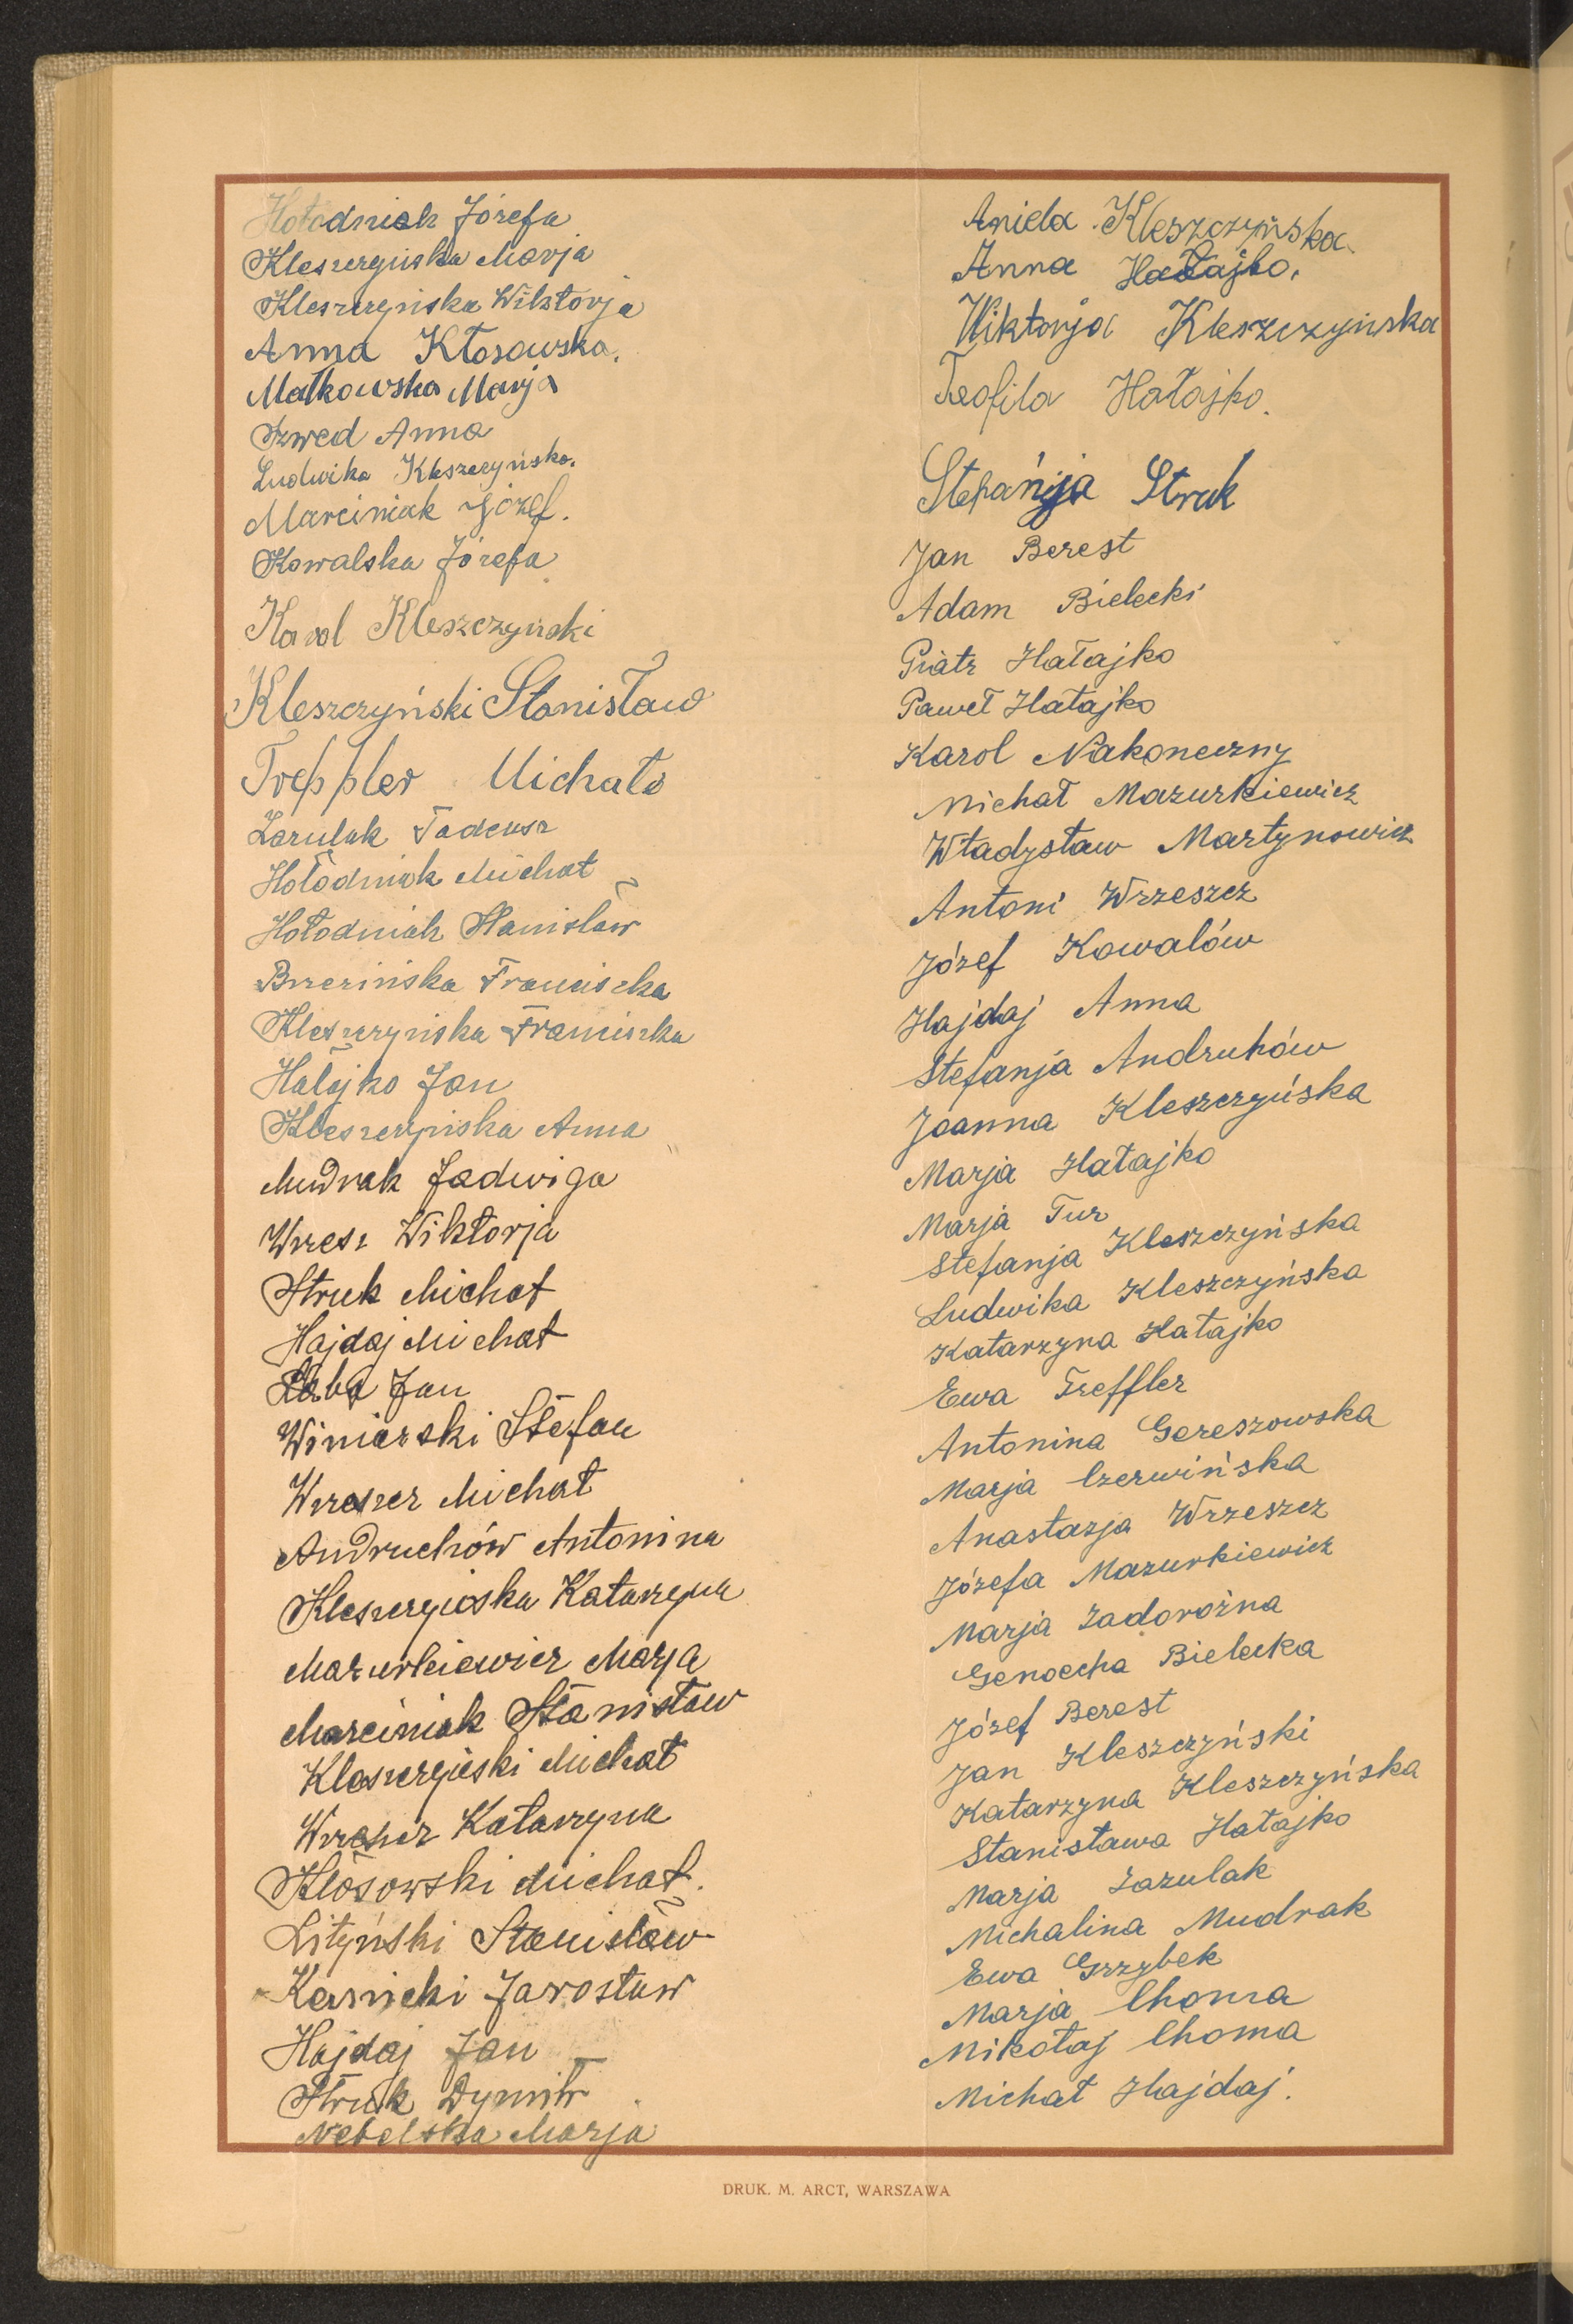 Hołodniak Józefa
Kleszczyńska Marja
Kleszczyńska Wiktorja
Anna Kłosowska.
Małkowska Marja
Szwed Anna
Ludwika Kleszczyńska.
Marciniak Józef.
Kowalska Józefa
Karol Kleszczyński
Kleszczyński Stanisław
Treppler Michał
Zazulak Tadeusz
Hołodniak Michał
Hołodniak Stanisław
Brzezińska Franciszka
Kleszczyńska Franciszka
Hałajko Jan
Kleszczyńska Anna
Mudrak Jadwiga
Wrzeszcz Wiktorja
Struk Michał
Hajdaj Michał
Łaba Jan
Winiarski Stefan
Wrzeszcz Michał
Andruchów Antonina
Kleszczyńska Katarzyna
Mazurkiewicz Marja
Marciniak Stanisław
Kleszczyński Michał
Wrzeszcz Katarzyna
Kłosowski Michał.
Lityński Stanisław
Kasnicki Jarosław
Hajdaj Jan
Struk Dymitr
Nebelska Marja
Aniela Kleszczyńska.
Anna Hałajko.
Wiktorja Kleszczyńska
Teofila Hałajko.
Stefanja Struk
Jan Berest
Adam Bielecki
Piotr Hałajko
Paweł Hałajko
Karol Nakoneczny
Michał Mazurkiewicz
Władysław Martynowicz
Antoni Wrzeszcz
Józef Kowalów
Hajdaj Anna
Stefanja Andruhów
Joanna Kleszczyńska
Marja Hałajko
Marja Tur
Stefanja Kleszczyńska
Ludwika Kleszczyńska
Katarzyna Hałajko
Ewa Treffler
Antonina Gereszowska
Marja Czerwińska
Anastazja Wrzeszcz
Józefa Mazurkiewicz
Marja Zadorożna
Genoecha Bielecka
Józef Berest
Jan Kleszczyński
Katarzyna Kleszczyńska
Stanisława Hałajko
Marja Zazulak
Michalina Mudrak
Ewa Grzybek
Marja Choma
Mikołaj Choma
Michał Hajdaj.
DRUK. M. ARCT, WARSZAWA